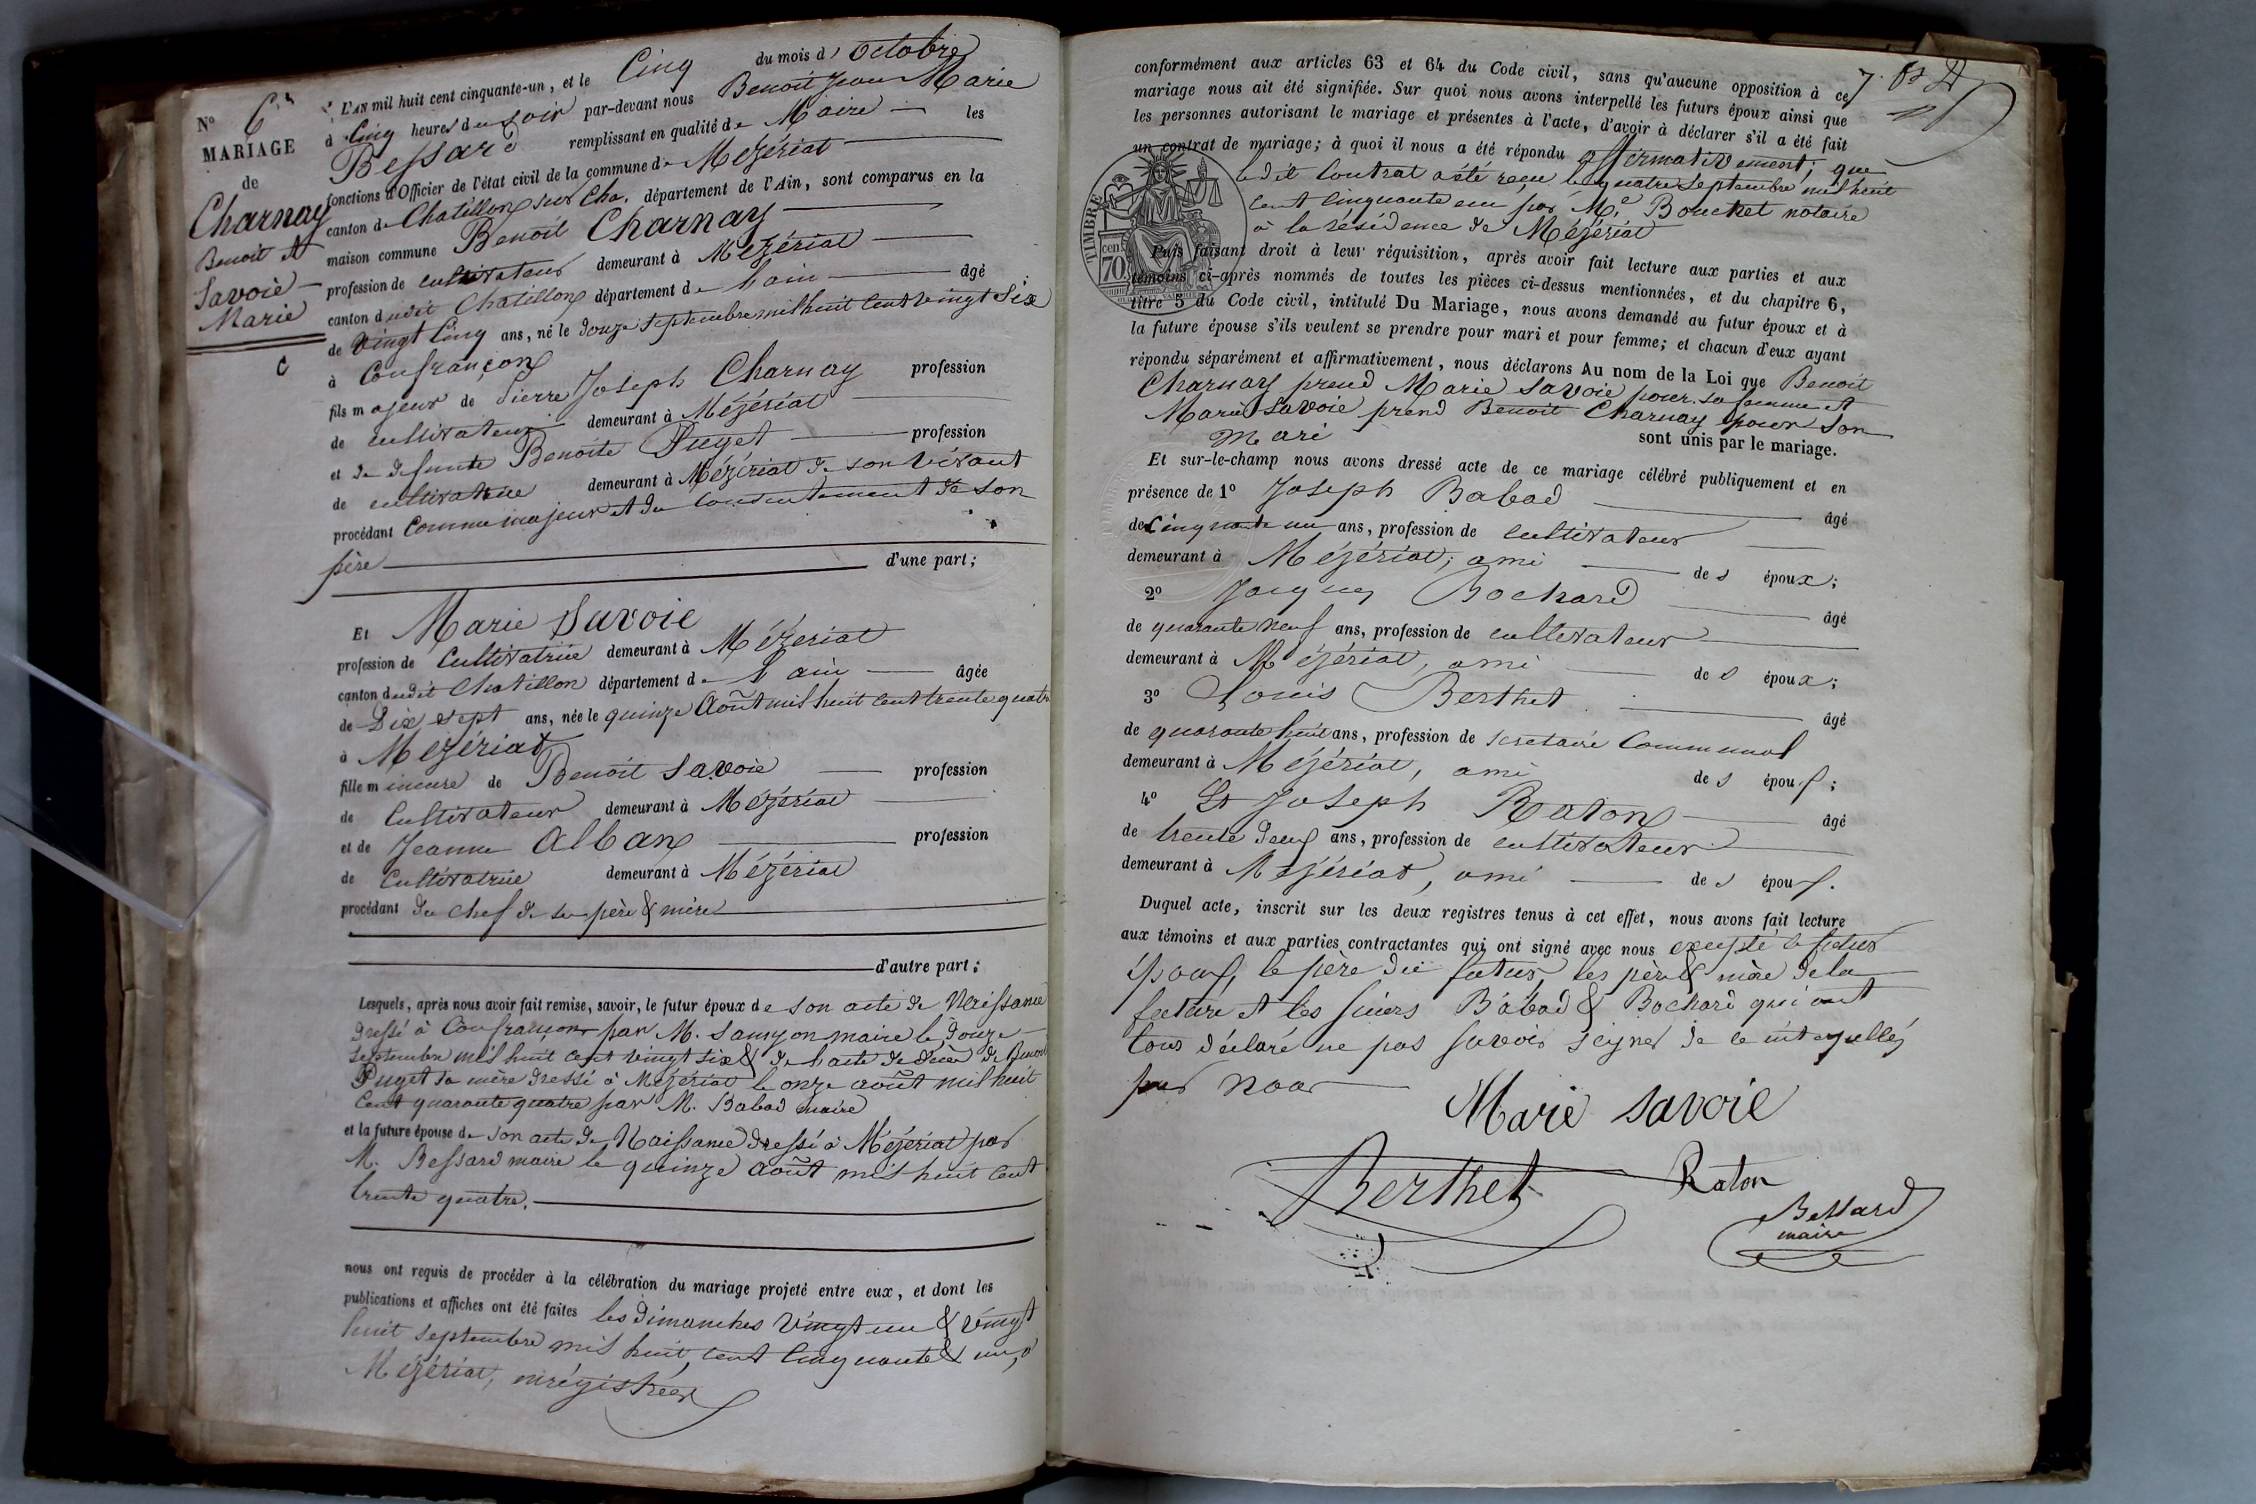 N° 6
MARIAGE
de
Charnay
Benoit et
Savoie
Marie
L'AN mil huit cent cinquante-un, et le Cinq du mois d'octobre
à Cinq heures du soir par-devant nous Benoit Jean Marie
Bessard remplissant en qualité de Maire les
fonctions d'Officier de l'état civil de la commune de Mézériat
canton de Chatillon sur Cha. département de l'Ain, sont comparus en la
maison commune Benoit Charnay
profession de cultivateur demeurant à Mézériat
canton dudit Chatillon département de l'ain âgé
de vingt Cinq ans, né le douze Septembre mil huit cent vingt Six
à Confrançon
fils majeur de Pierre Joseph Charnay profession
de cultivateur demeurant à Mézériat
et de defunte Benoite Puget profession
de cultivatrice demeurant à Mézériat de son vivant
procédant comme majeur et du consentement de son
père d'une part;
Et Marie Savoie
profession de Cultivatrice demeurant à Mézériat
canton dudit Chatillon département de l'ain âgée
de Dix sept ans, née le quinze Août mil huit cent trente quatre
à Mézériat
fille mineure de Benoit Savoie profession
de Cultivateur demeurant à Mézériat
et de Jeanne Alban profession
de Cultivatrice demeurant à Mézériat
procédant du chef de ses père & mère
d'autre part;
Lesquels, après nous avoir fait remise, savoir, le futur époux de son acte de Naissance
dressé à Confrançon par M. Samyon maire le douze
Septembre mil huit cent vingt six & de l'acte de décès de Benoite
Puget sa mère dressé à Mézériat le onze août mil huit
Cent quarante quatre par M. Babad maire
et la future épouse de son acte de Naissance dressé à Mézériat par
M. Bessard maire le quinze Août mil huit Cent
trente quatre.
nous ont requis de procéder à la célébration du mariage projeté entre eux, et dont les
publications et affiches ont été faites les dimanches vingt un & vingt
huit septembre mil huit cent Cinquante & un, à
Mézériat, enrégistrées
conformément aux articles 63 et 64 du Code civil, sans qu'aucune opposition à ce
mariage nous ait été signifiée. Sur quoi nous avons interpellé les futurs époux ainsi que
les personnes autorisant le mariage et présentes à l'acte, d'avoir à déclarer s'il a été fait
un contrat de mariage; à quoi il nous a été répondu affirmativement; que
ledit Contrat a été reçu le quatre Septembre mil huit
cent Cinquante un par Me Bouchet notaire
à la résidence de Mézériat
TIMBRE
cen.
70
Puis faisant droit à leur réquisition, après avoir fait lecture aux parties et aux
témoins ci-après nommés de toutes les pièces ci-dessus mentionnées, et du chapitre 6,
titre 5 du Code civil, intitulé Du Mariage, nous avons demandé au futur époux et à
la future épouse s'ils veulent se prendre pour mari et pour femme; et chacun d'eux ayant
répondu séparément et affirmativement, nous déclarons Au nom de la Loi que Benoit
Charnay prend Marie Savoie pour sa femme et
Marie Savoie prend Benoit Charnay pour Son
Mari sont unis par le mariage.
Et sur-le-champ nous avons dressé acte de ce mariage célébré publiquement et en
présence de 1° Joseph Babad âgé
de Cinquante un ans, profession de cultivateur
demeurant à Mézériat, ami des époux;
2° Jacques Bochard âgé
de quarante neuf ans, profession de cultivateur
demeurant à Mézériat, ami des époux;
3° Louis Berthet âgé
de quarante huit ans, profession de secretaire Communal
demeurant à Mézériat, ami des époux;
4° Et Joseph Raton âgé
de trente deux ans, profession de cultivateur
demeurant à Mézériat, ami des époux.
Duquel acte, inscrit sur les deux registres tenus à cet effet, nous avons fait lecture
aux témoins et aux parties contractantes qui ont signé avec nous excepté le futur
époux, le père du futur, les père & mère de la
future et les sieurs Babad & Bochard qui ont
tous déclaré ne pas savoir signer de ce interpellés
par nous
Marie Savoie
Berthet Raton
Bessard
maire